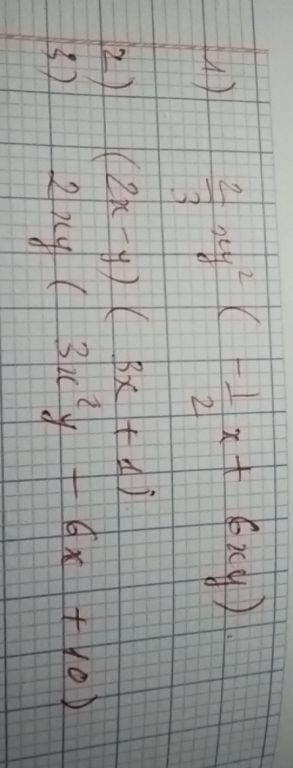 1) 2/3 xy² ( -1/2 x + 6xy).
2) (2x - y) ( 3x + 1).
3) 2xy ( 3x²y - 6x + 10)